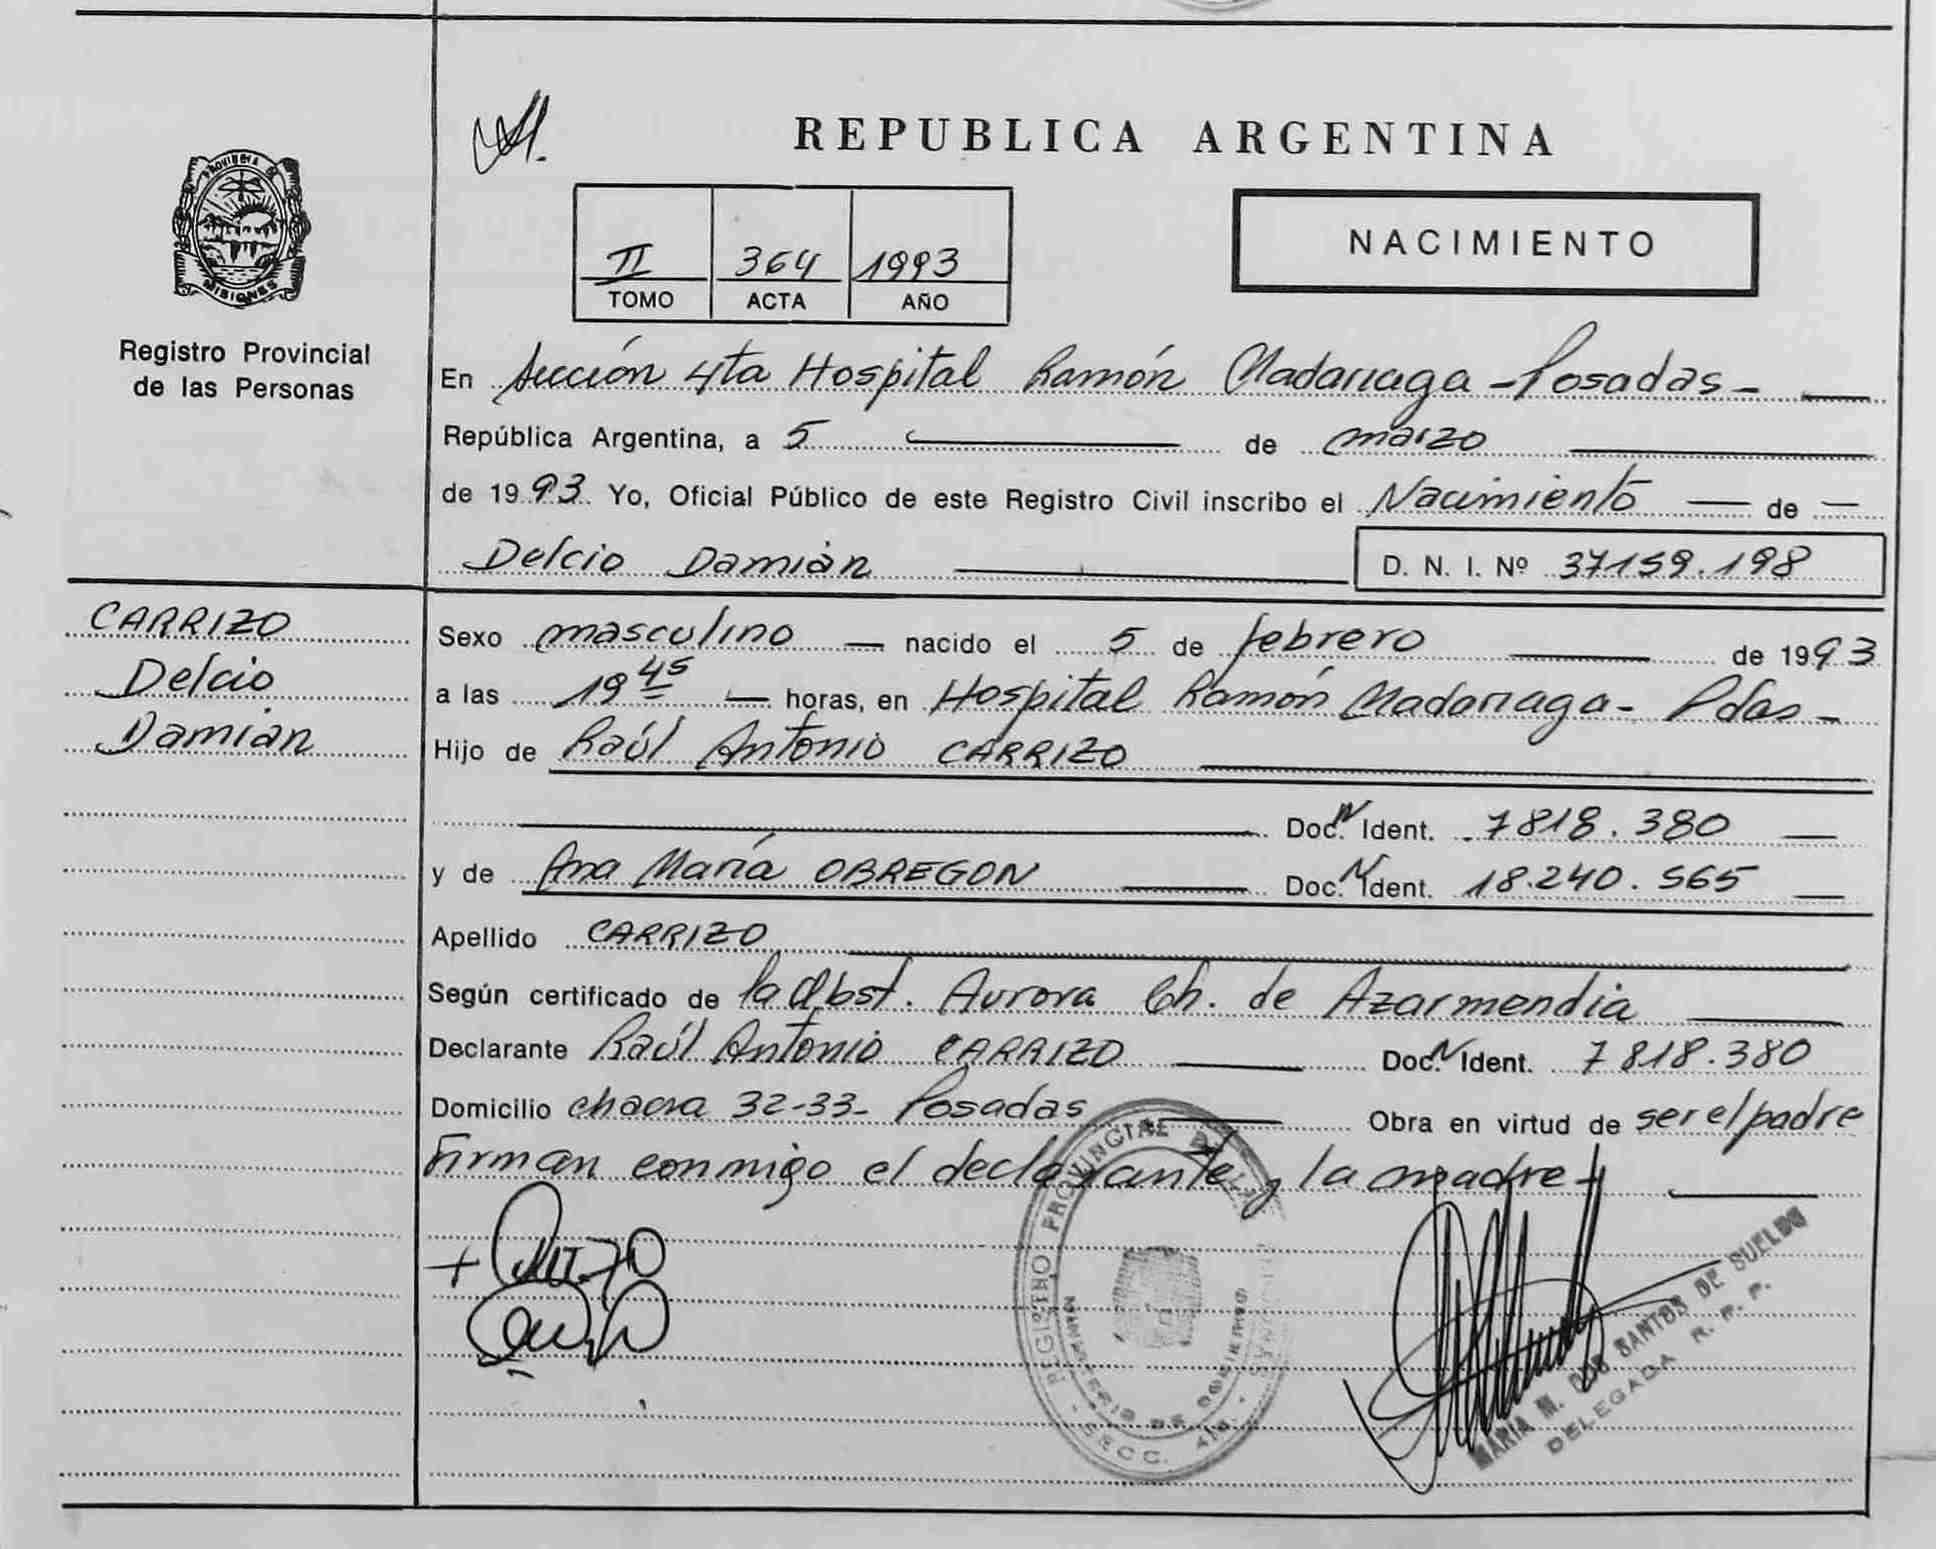 REPUBLICA ARGENTINA
PROVINCIA DE
MISIONES
Registro Provincial
de las Personas
II 364 1993
TOMO ACTA AÑO
NACIMIENTO
En Sección 4ta Hospital Ramón Madariaga - Posadas -
República Argentina, a 5 de marzo
de 1993 Yo, Oficial Público de este Registro Civil inscribo el Nacimiento de
Delcio Damián D. N. I. Nº 37159.198
CARRIZO
Delcio
Damián
Sexo masculino nacido el 5 de febrero de 1993
a las 19 45 horas, en Hospital Ramón Madariaga - Pdas -
Hijo de Raúl Antonio CARRIZO
Doc. N Ident. 7818.380
y de Ana María OBREGON Doc. N Ident. 18.240.565
Apellido CARRIZO
Según certificado de la Obst. Aurora Ch. de Azarmendia
Declarante Raúl Antonio CARRIZO Doc. N Ident. 7818.380
Domicilio chacra 32-33- Posadas Obra en virtud de ser el padre
Firman conmigo el declarante y la madre-
REGISTRO PROVINCIAL DE LAS PERSONAS
MINISTERIO DE GOBIERNO
- SECC. 4ta. -
MARIA M. DOS SANTOS DE SUELDO
DELEGADA R. P. P.